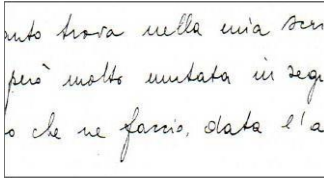 anto trova nella mia scri
però molto mutata in segu
o che ne faccio, data l'a